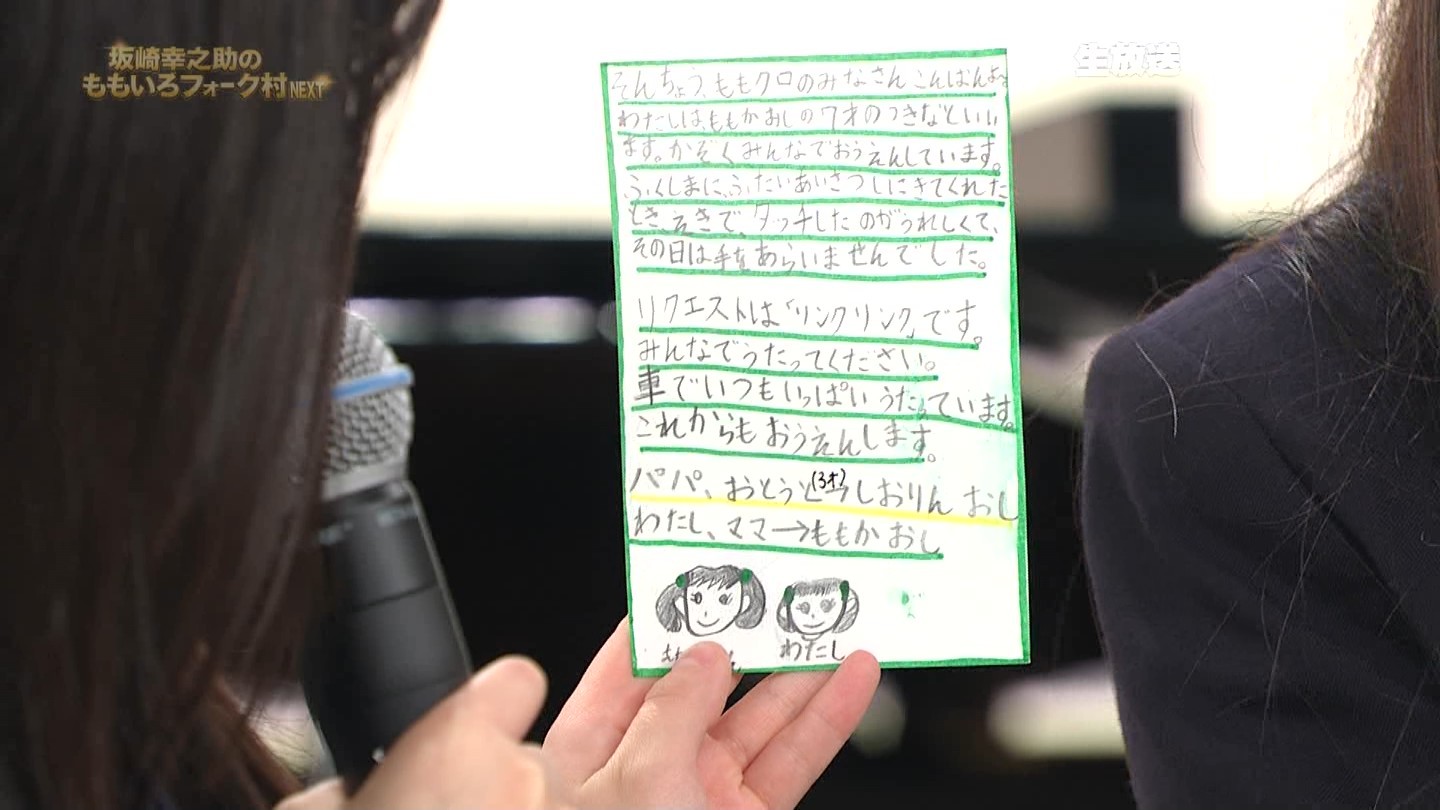 坂崎幸之助の
ももいろフォーク村NEXT
生放送
そんちょう、ももクロのみなさんこんばんは
わたしは、ももかおしの7才のつきなといい
ます。かぞくみんなでおうえんしています。
ふくしまに、ふたいあいさつしにきてくれた
とき、えきで、タッチしたのがうれしくて、
その日は手をあらいませんでした。
リクエストは「リンクリンク」です。
みんなでうたってください。
車でいつもいっぱいうたっています。
これからもおうえんします。
パパ、おとうと(3才)→しおりんおし
わたし、ママ→ももかおし
わたし